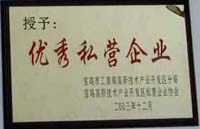 授予：
优秀私营企业
宝鸡市工商局高新技术产业开发区分局
宝鸡高新技术产业开发区私营企业协会
二00三年十二月